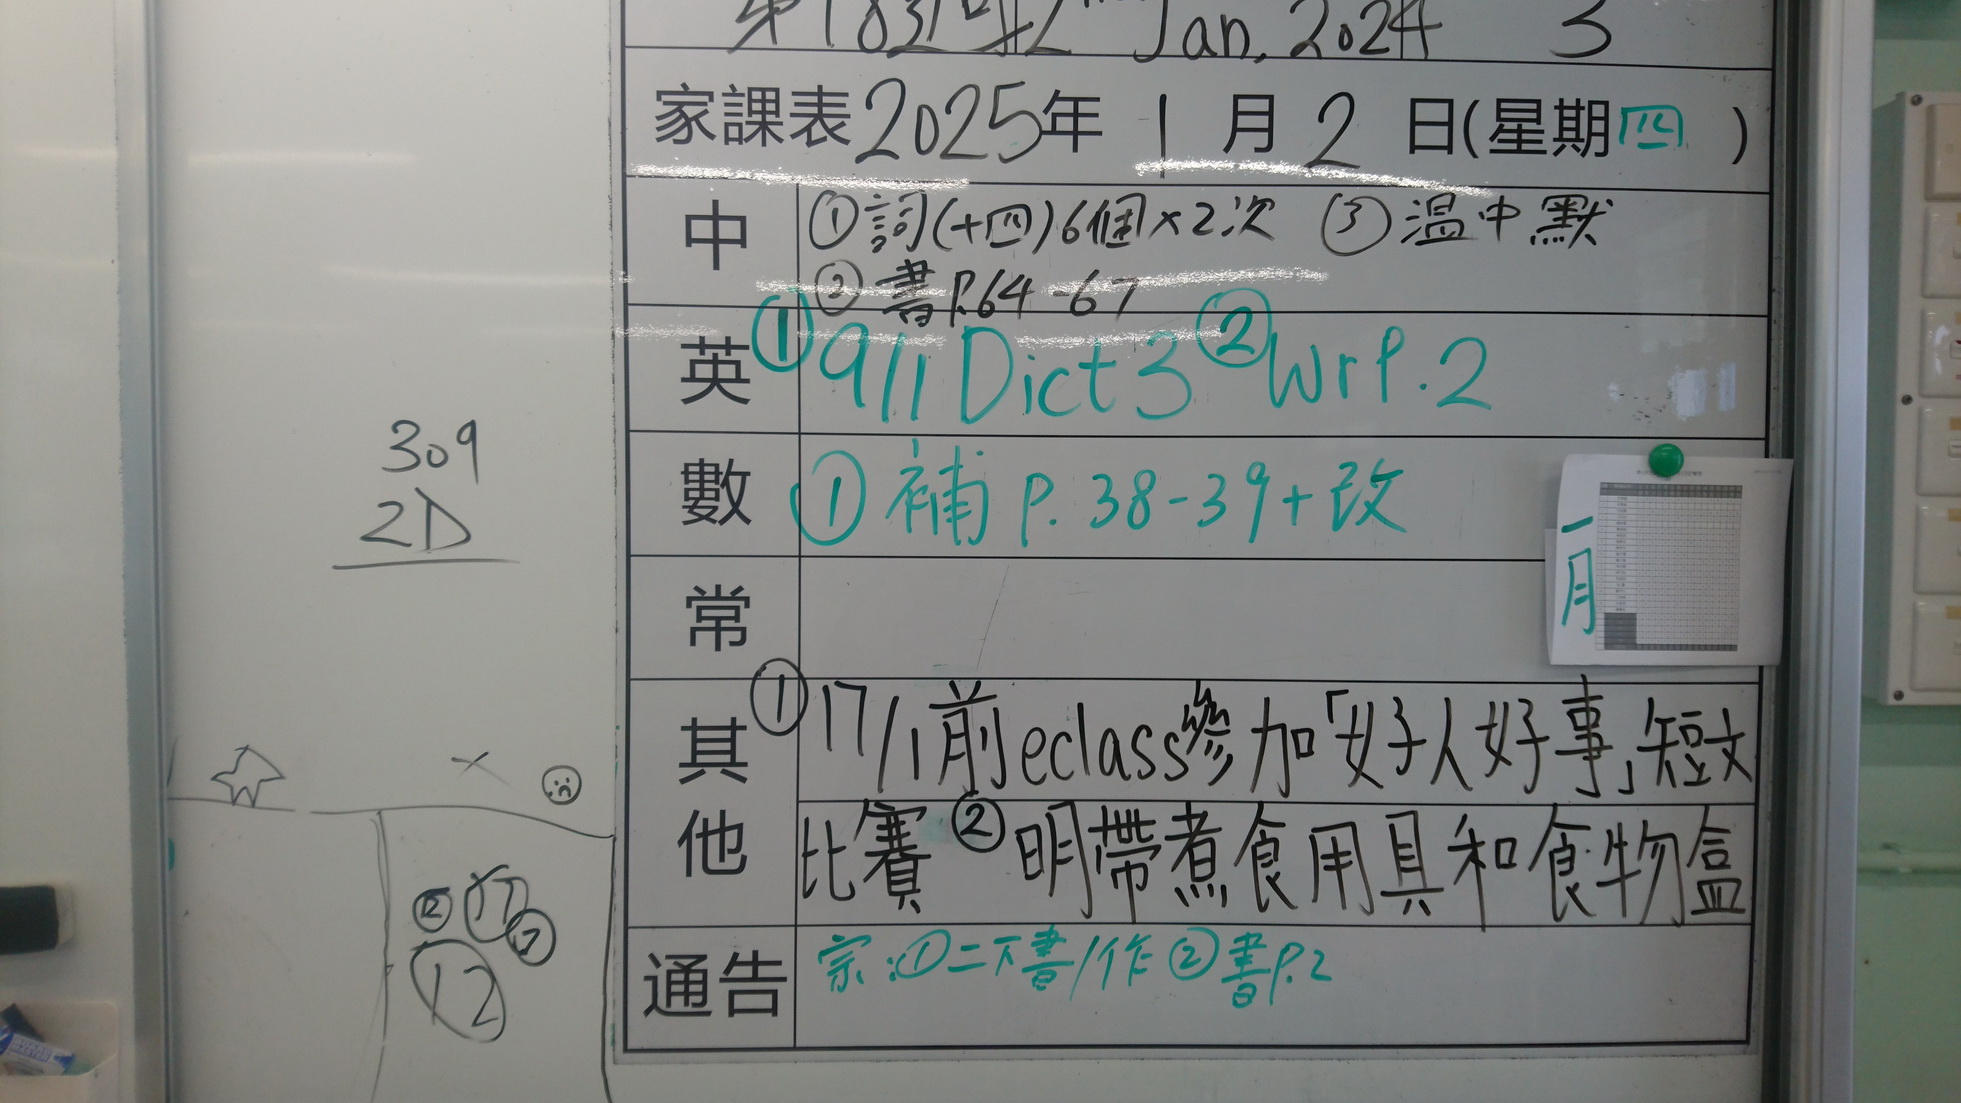 Jan, 2024 3
家課表2025年 1 月 2 日(星期四 )
中
①詞(十四)6個×2次 ③溫中默
②書P.64-67
英
①9/1 Dict 3 ②Wr P.2
數
①補 P.38-39+改
常
其他
①17/1前eclass參加「好人好事」短文
比賽 ②明帶煮食用具和食物盒
通告
宗:①二下書/作 ②書P.2
309
2D
一月
12
17
12